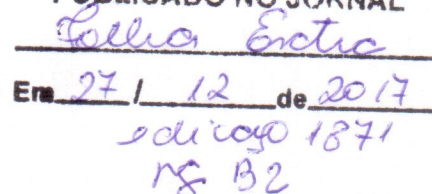 PUBLICADO NO JORNAL
Folha Extra
Em 27 / 12 de 2017
edicação 1871
pg B2